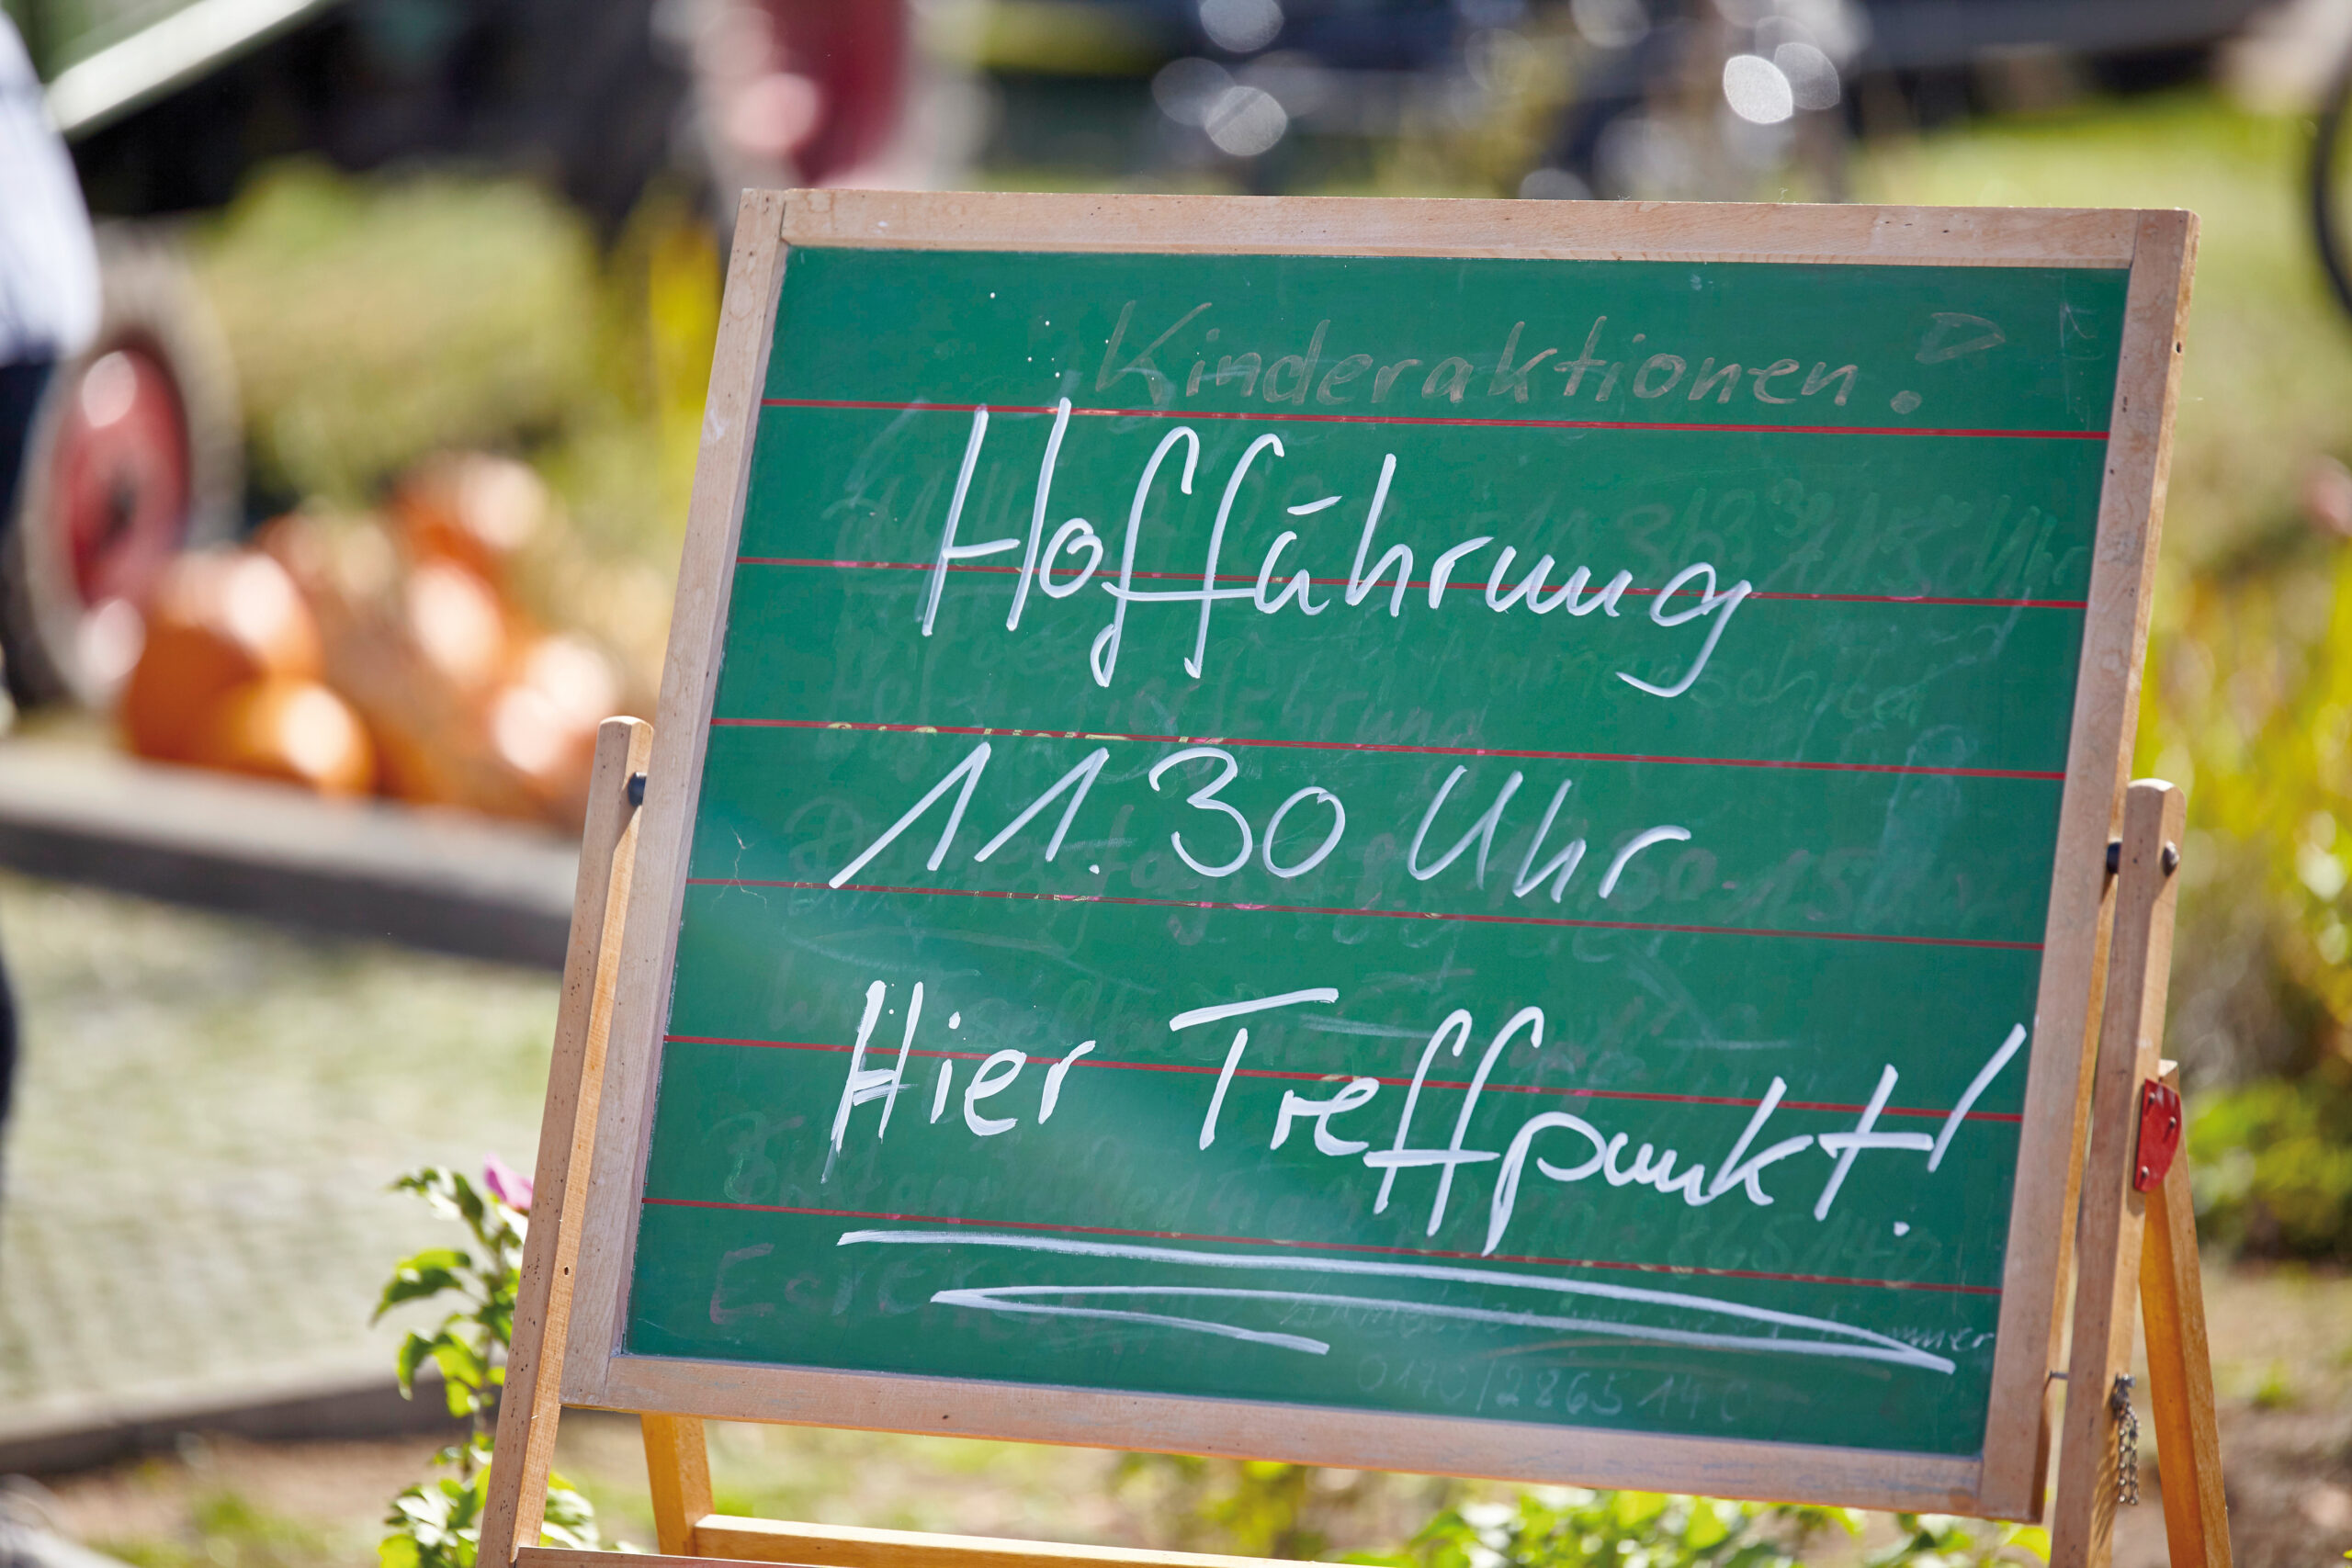 Kinderaktionen!
Hofführung
11.30 Uhr
Hier Treffpunkt!